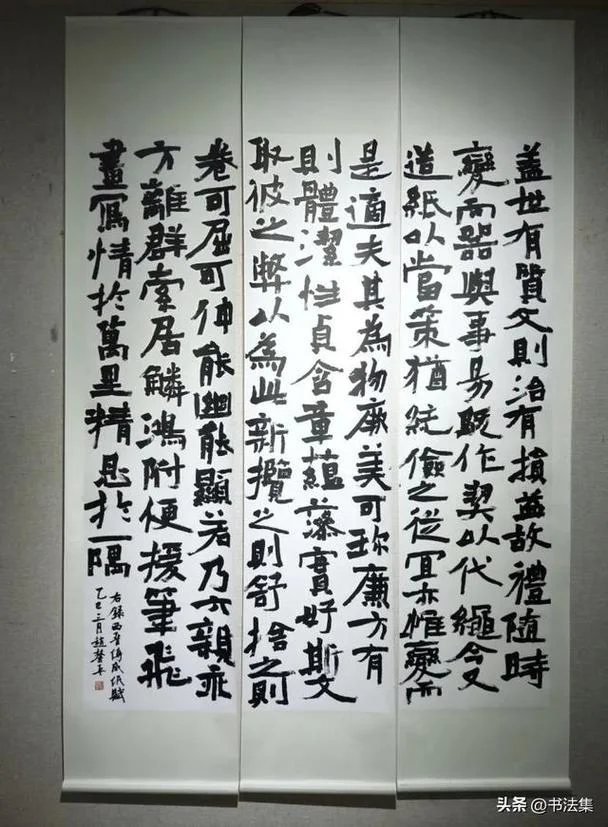 蓋世有質文則治有損益故禮隨時
變而器與事易既作契以代繩兮又
造紙以當策猶純儉之從宜亦惟變而
是適夫其為物厥美可珎廉方有
則體潔性貞含章蘊藻實好斯文
取彼之弊以為此新攬之則舒捨之則
卷可屈可伸能幽能顯若乃六親乖
方離群索居鱗鴻附便援筆飛
書寫情於萬里精思於一隅
右錄西晉傅咸紙賦
乙巳三月趙
头条 @书法集